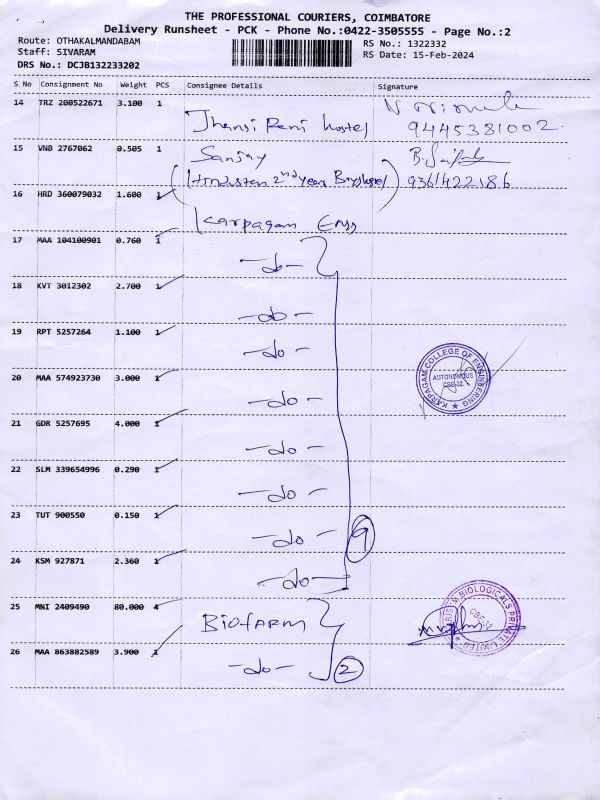 THE PROFESSIONAL COURIERS, COIMBATORE
Delivery Runsheet - PCK - Phone No.:0422-3505555 - Page No.:2
Route: OTHAKALMANDABAM
RS No.: 1322332
Staff: SIVARAM
RS Date: 15-Feb-2024
DRS No.: DCJB132233202
S No Consignment No Weight PCS Consignee Details Signature
14 TRZ 200522671 3.100 1
Jhansi Rani hostel 9445381002
15 VNB 2767062 0.505 1 Sanjay
(Hindustan 2nd year Boys hostel) 9361422186
16 HRD 360079032 1.600 1
Karpagam Engg
17 MAA 104100901 0.760 1
-do-
18 KVT 3012302 2.700 1
-do-
19 RPT 5257264 1.100 1
-do-
20 MAA 574923730 3.000 1
-do-
21 GDR 5257695 4.000 1
-do-
22 SLM 339654996 0.290 1
-do-
23 TUT 900550 0.150 1
-do- 9
24 KSM 927871 2.360 1
-do-
25 MNI 2409490 80.000 4
BIOFARM
26 MAA 863882589 3.900 1
-do- 2
KARPAGAM COLLEGE OF ENGINEERING
AUTONOMOUS
CBE-32.
BIOLOGICALS PRIVATE LIMITED
CBE-32